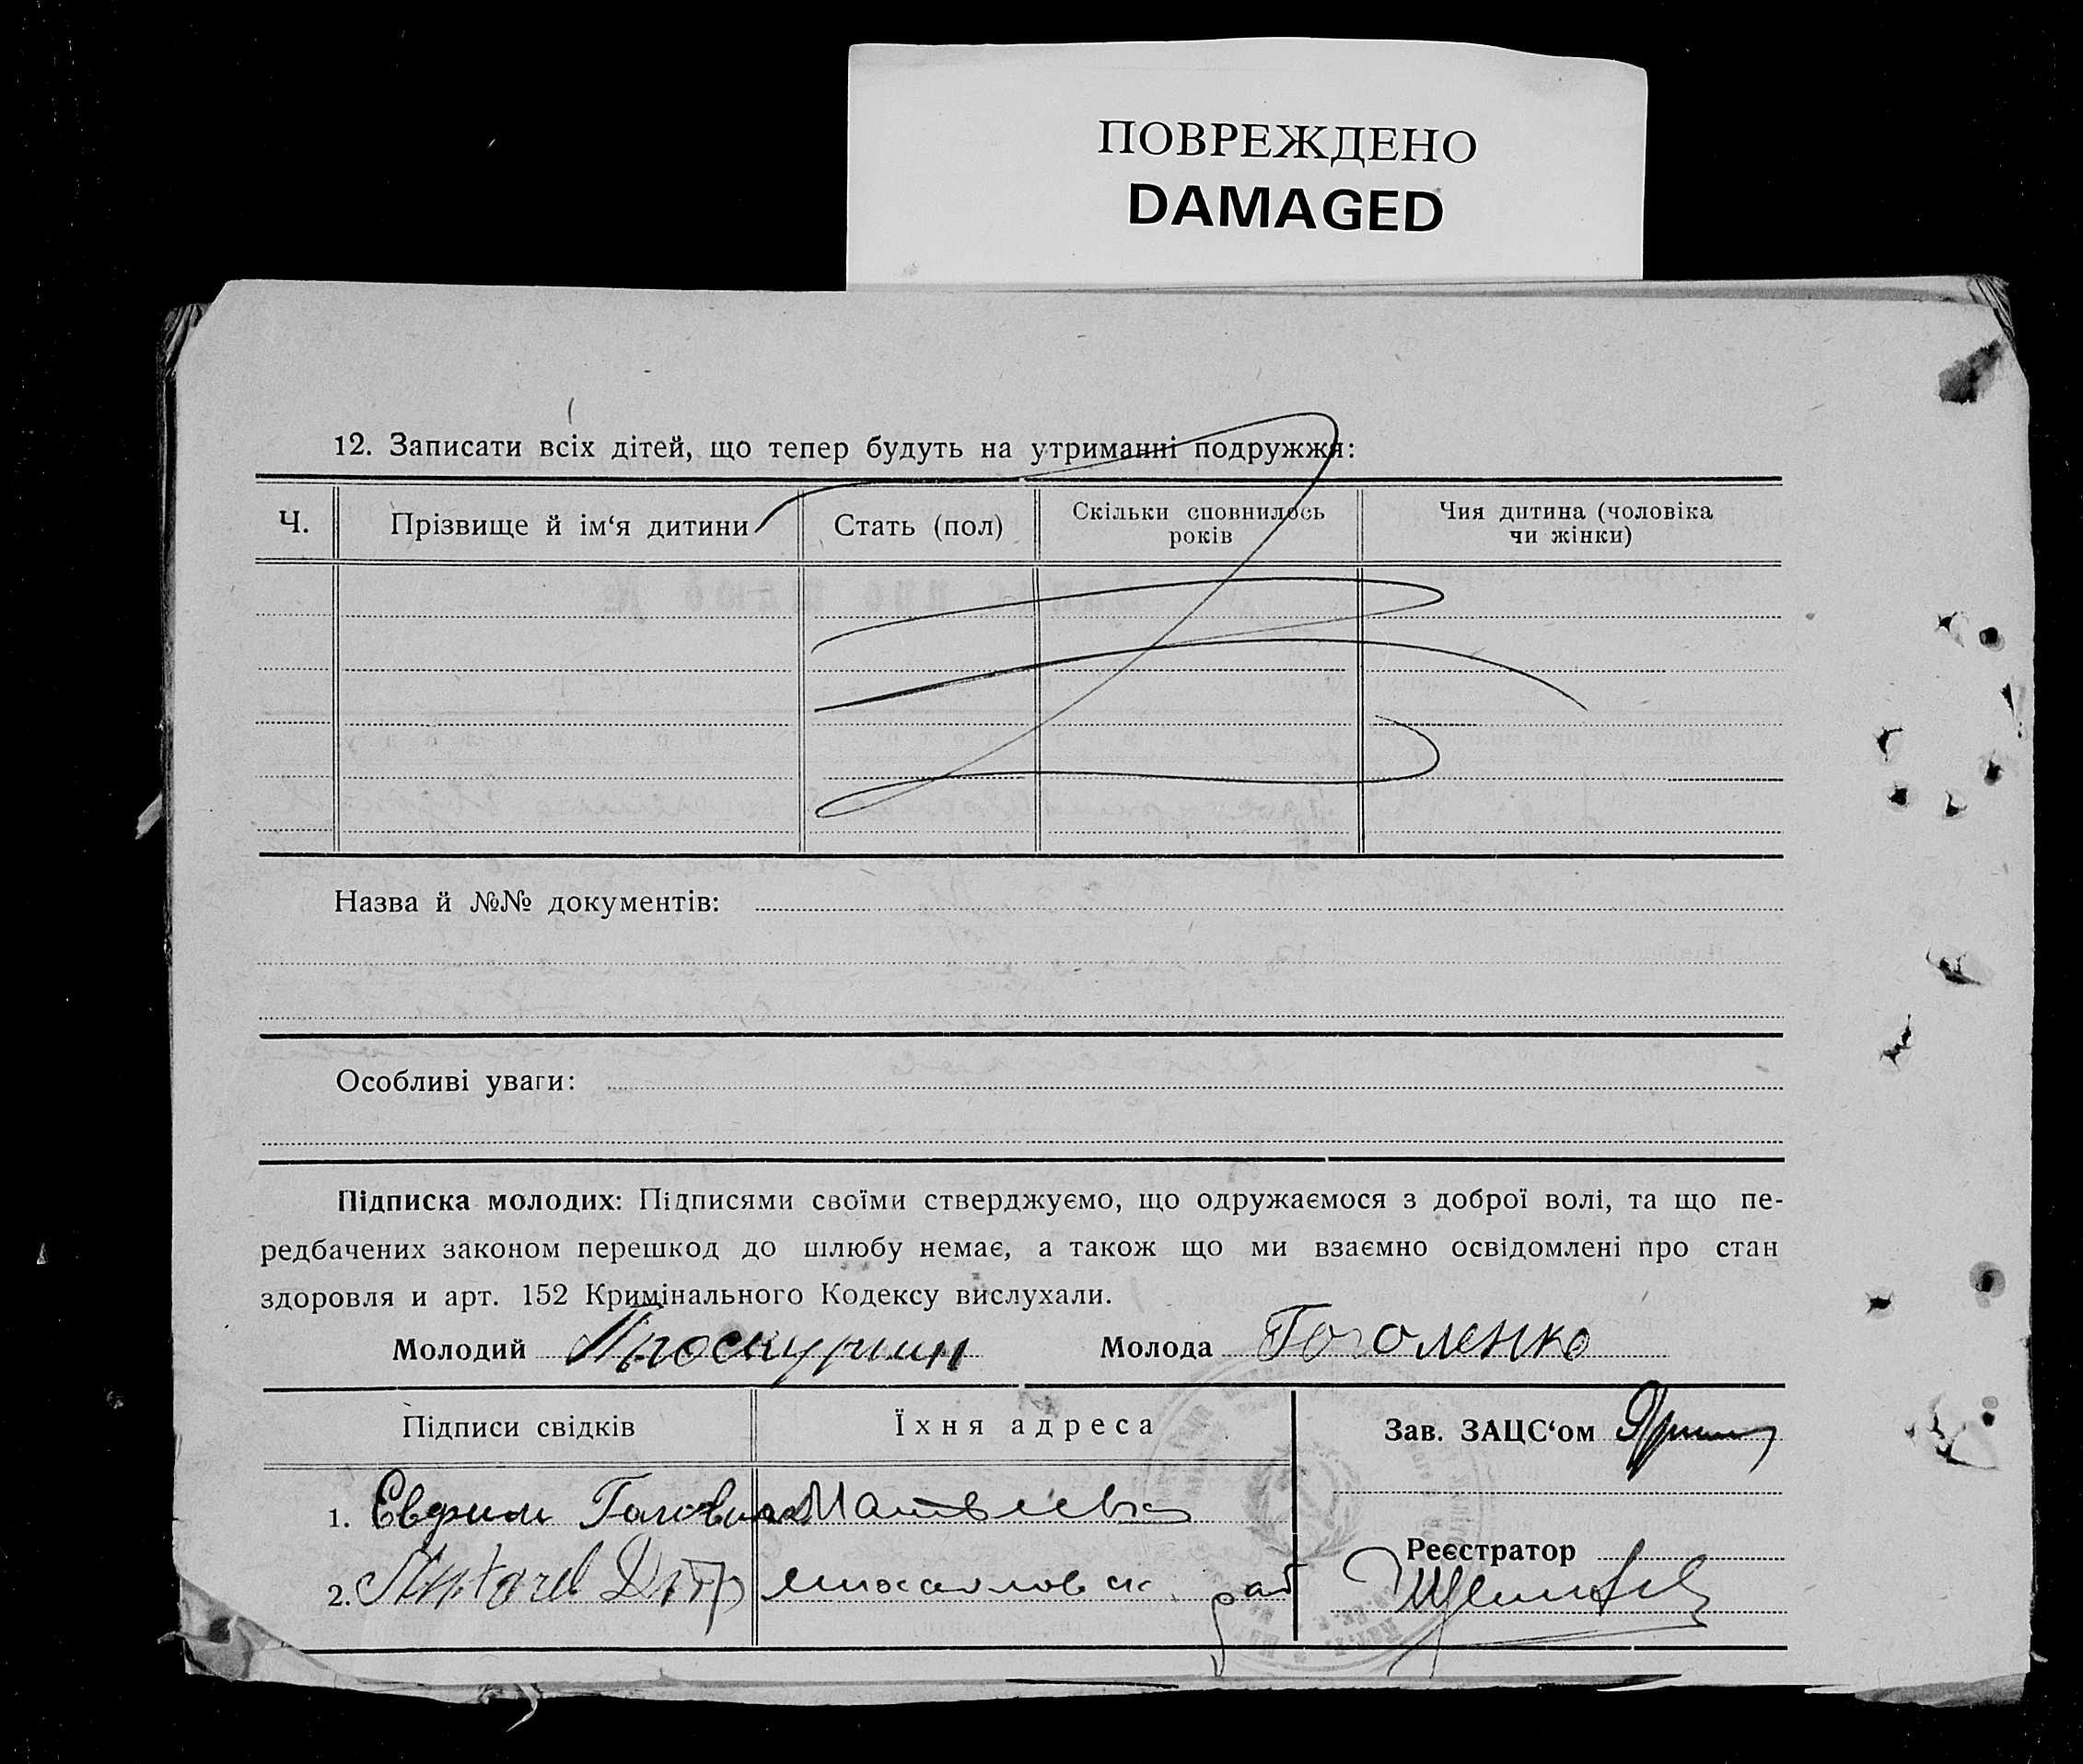 ПОВРЕЖДЕНО
DAMAGED
12. Записати всіх дітей, що тепер будуть на утриманні подружжя:
Ч.
Прізвище й ім‘я дитини
Стать (пол)
Скільки сповнилось
років
Чия дитина (чоловіка
чи жінки)
Назва й №№ документів:
Особливі уваги:
Підписка молодих: Підписями своїми стверджуємо, що одружаємося з доброї волі, та що пе-
редбачених законом перешкод до шлюбу немає, а також що ми взаємно освідомлені про стан
здоровля и арт. 152 Кримінального Кодексу вислухали.
Молодий Проскурин Молода Гоголенко
Підписи свідків
Їхня адреса
Зав. ЗАЦС‘ом
1. Евфим
2.
Реєстратор